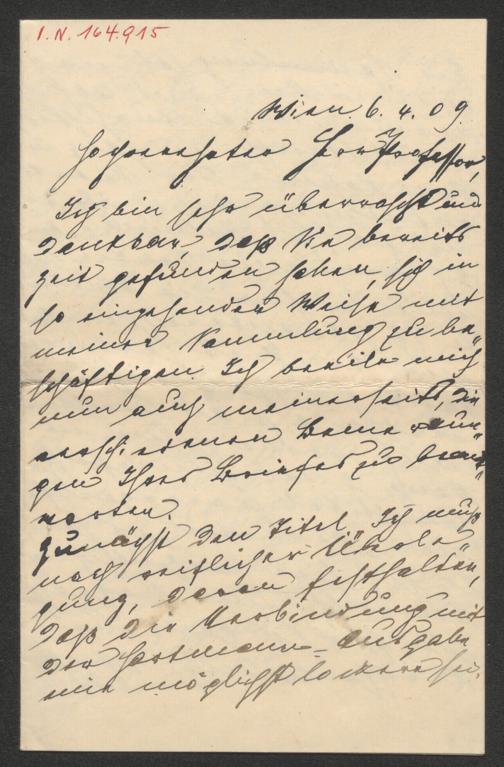 I.N. 164.915
Wien 6. 4. 09
Hochverehrter Herr Professor,
Ich bin sehr überrascht und
dankbar, daß Sie bereits
Zeit gefunden haben, sich in
so eingehender Weise mit
meiner Sammlung zu be„
schäftigen. Ich beeile mich
nun auch meinerseits, die
verschiedenen Bemerkun„
gen Ihres Briefes zu beant„
worten.
Zunächst den Titel. Ich muß
nach reiflicher Überle„
gung, daran festhalten,
daß die Verbindung mit
der Hartmann-Ausgabe
wie möglichst lockere sei.